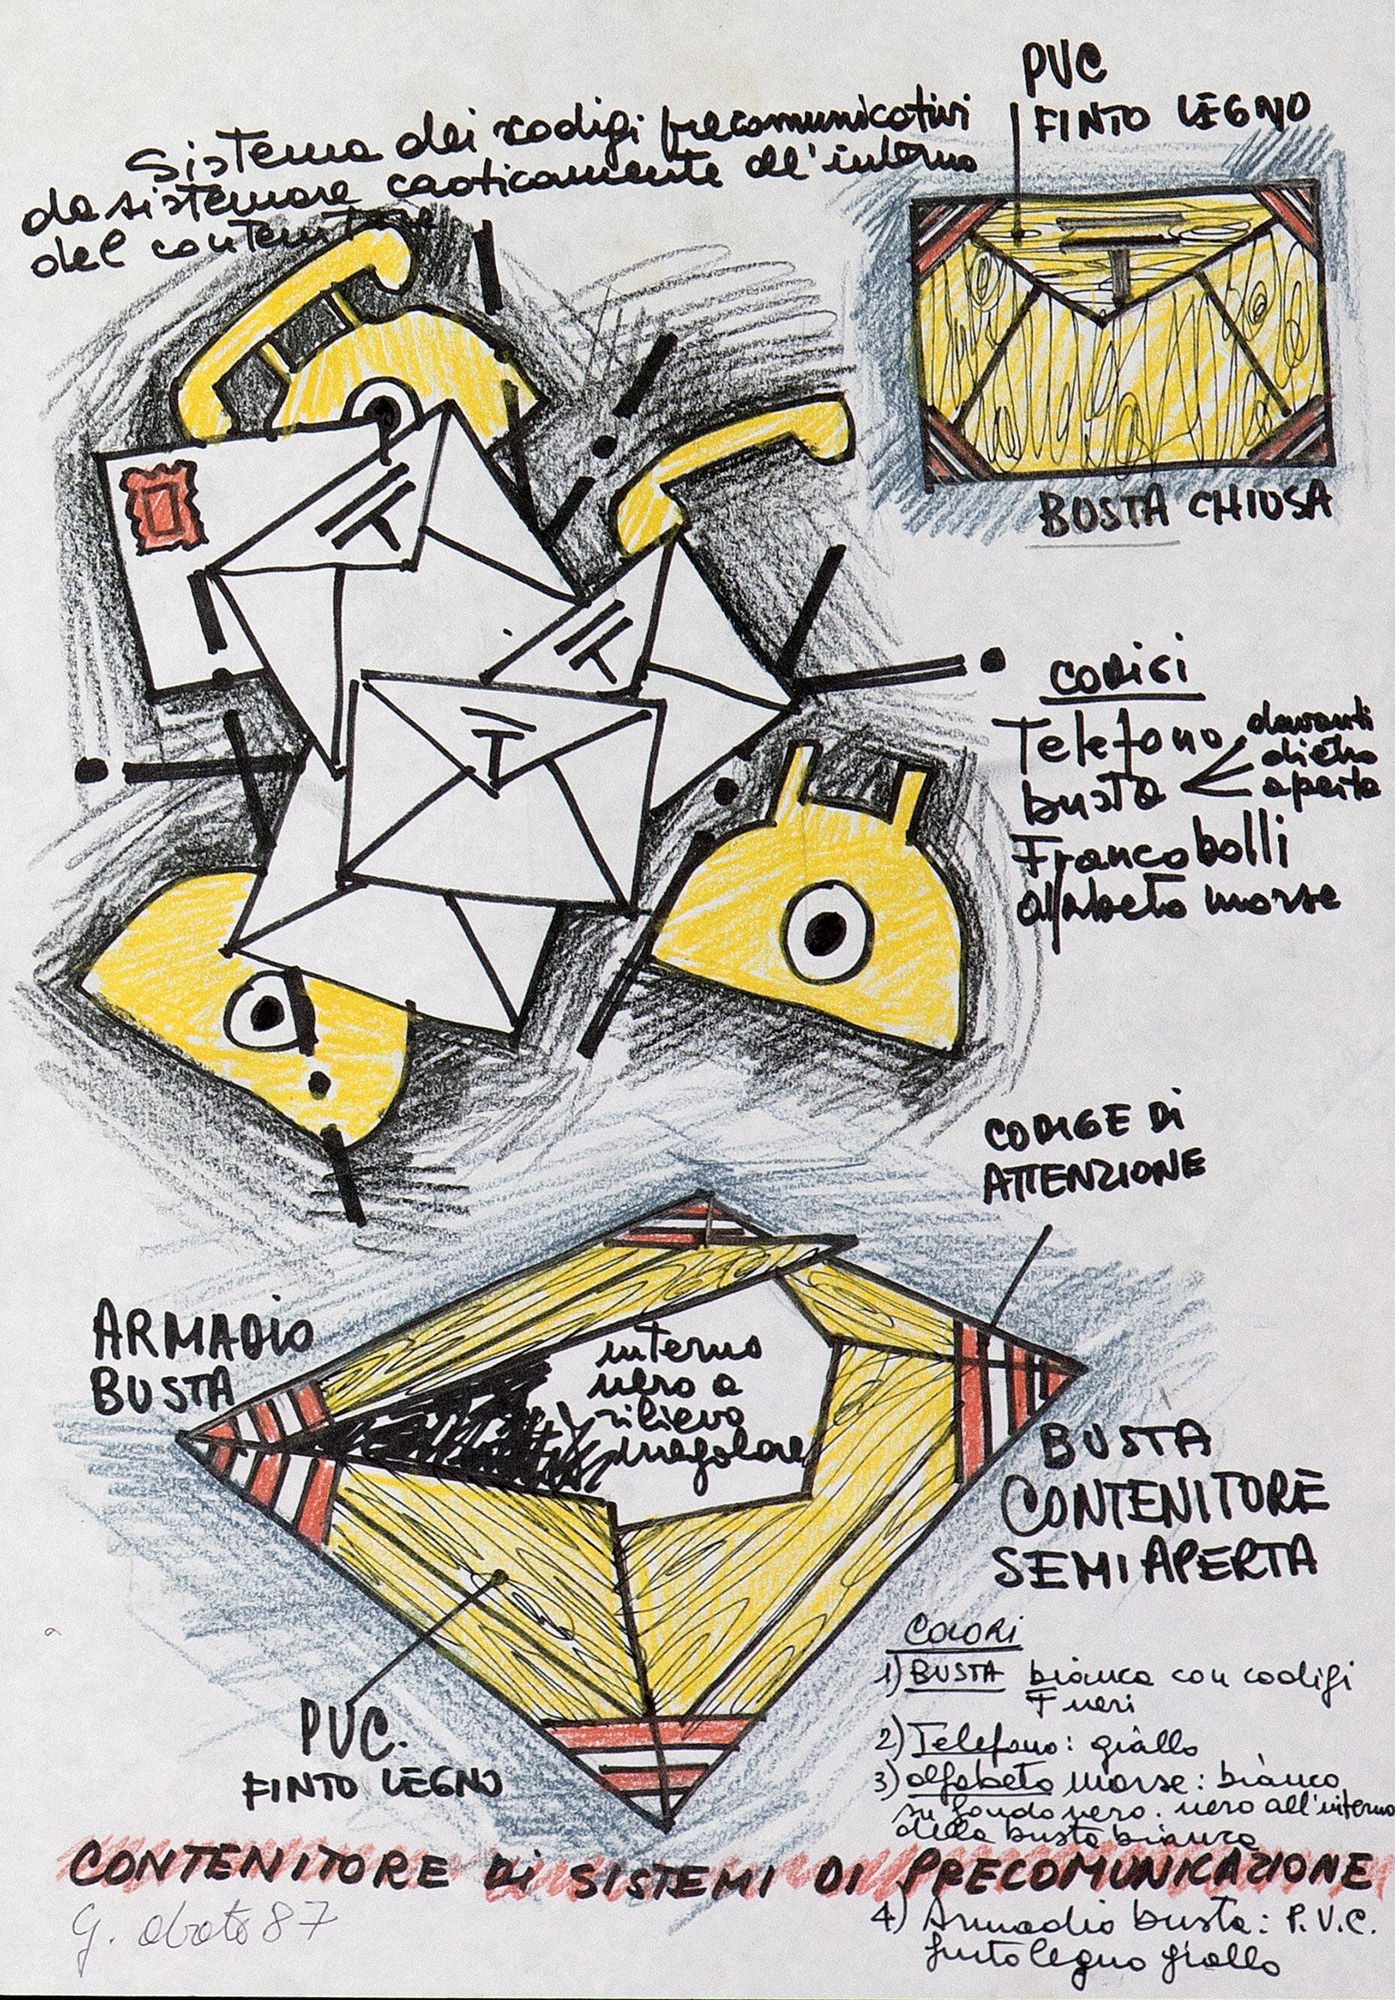 Sistema dei codigi precomunicativi
da sistemare caoticamente all'interno
del contenitore
PVC
FINTO LEGNO
T
BUSTA CHIUSA
T
T
T
CODIGI
Telefono
busta < davanti
dietro
aperta
Francobolli
alfabeto morse
CODIGE DI
ATTENZIONE
ARMADIO
BUSTA
interno
nero a
rilievo
irregolare
BUSTA
CONTENITORE
SEMIAPERTA
PVC.
FINTO LEGNO
COLORI
1) BUSTA bianca con codigi
T neri
2) Telefono: giallo
3) alfabeto morse: bianco
su fondo nero. nero all'interno
della busta bianca
CONTENITORE DI SISTEMI DI PRECOMUNICAZIONE
G. abate 87
4) Armadio busta: P.V.C.
finto legno giallo